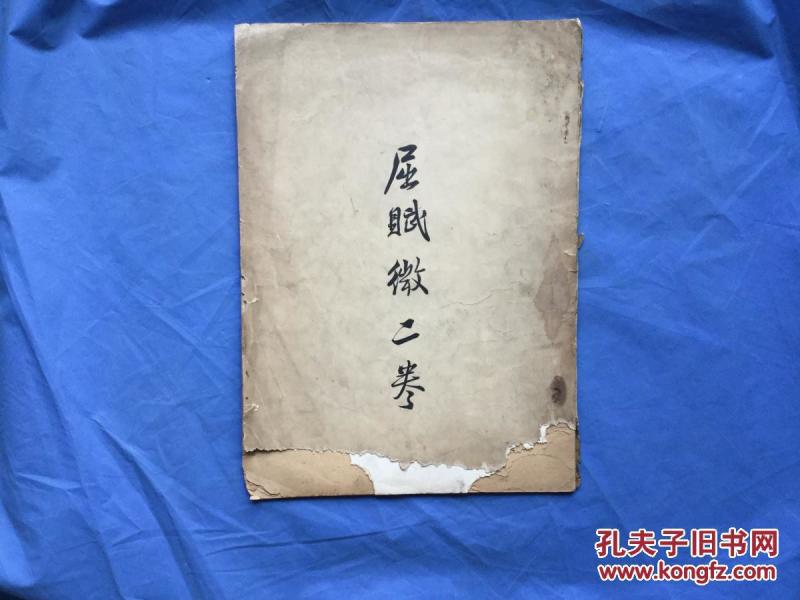 屈賦微二卷
孔夫子旧书网
www.kongfz.com